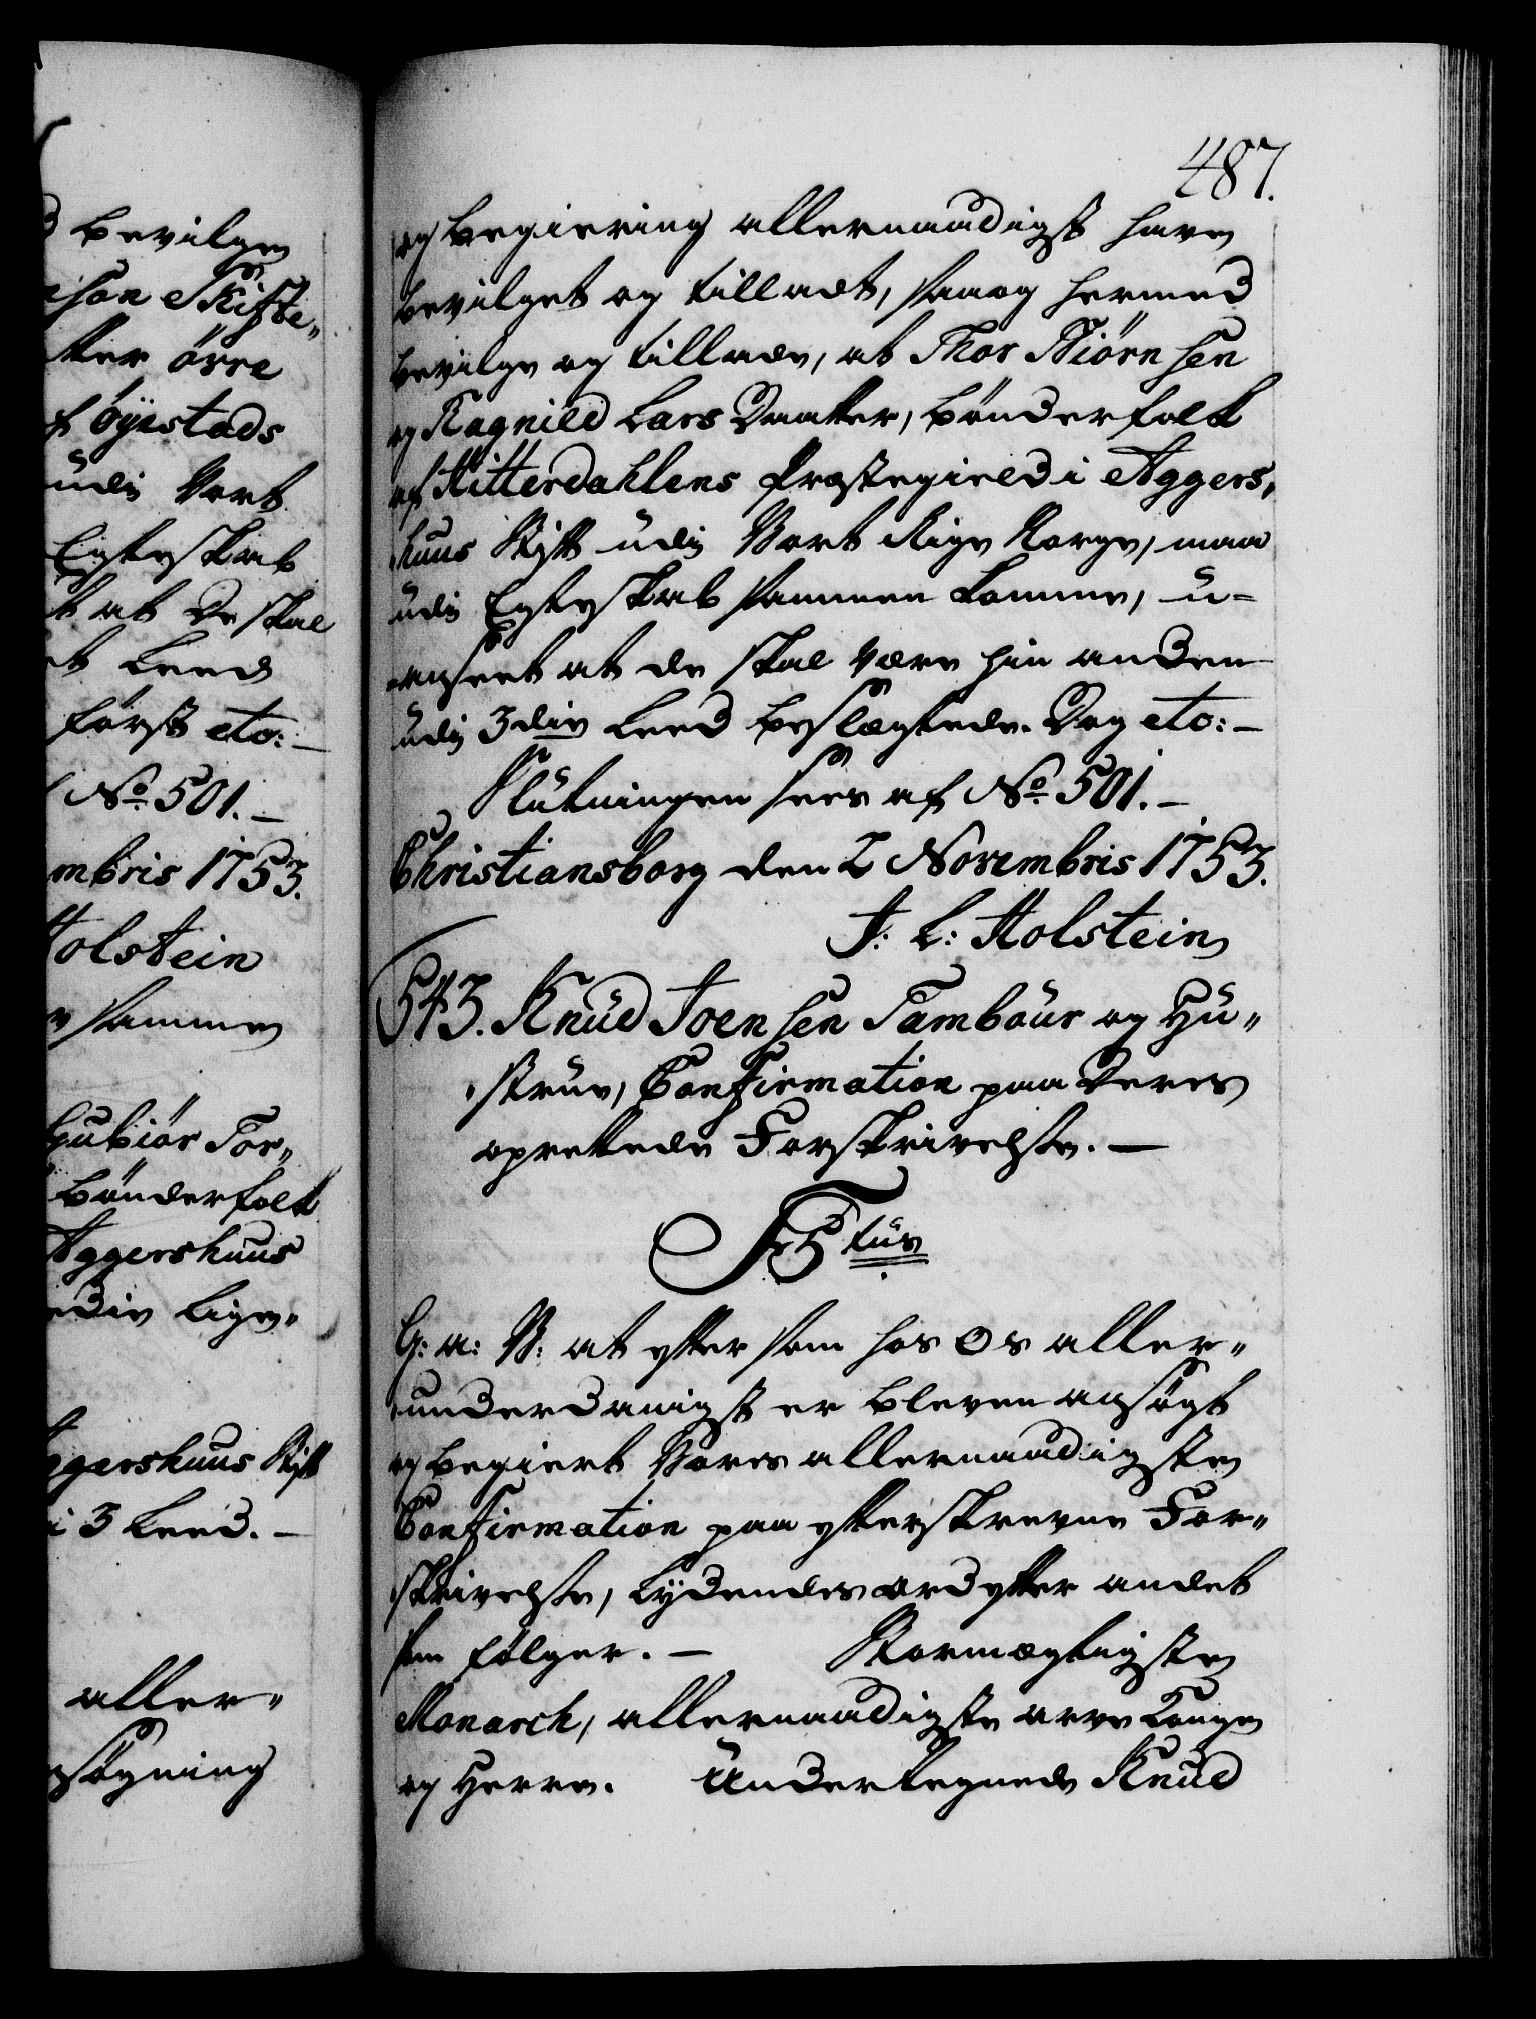 bevilgen
sÃ¸n Skifte„
øvre
Øyestads
udi Vort
Egteskab
at De skal
Leed
først etc:–
No 501.–
mbris 1753.
Holstein
sammen
Gubiør Tor„
bønderfolk
Aggershuus
Lige„
ggershuus Stift
i 3 Leed.–
aller„
søgning
487.
og begiering allernaadigst have
bevilget og tilladt, saa og hermed
bevilge og tillade, at Thor Biørnsen
og Ragnild Lars Daatter, bønderfolk
af Hitterdahlens Præstegield i Aggers„
huus Stift udi Vort Rige Norge, maa
udi Egteskab sammen komme, u-
anseet at de skal være hin anden
udi 3die Leed beslægtede. Dog etc:–
Slutningen sees af No 501.–
Christiansborg den 2 Novembris 1753.
J: L: Holstein
543. Knud Joensen Tambour og Hu„
strue, Confirmation paa Deres
oprettede Forskrivelse.–
F 5tus
G: a: V: at efter som hos Os aller„
underdanigst er bleven ansøgt
og begiert Vores allernaadigste
Confirmation paa efterskrevne For„
skrivelse, lydendes ord efter andet
som følger.– Stormægtigste
Monarch, allernaadigste arve Konge
og Herre. Undertegnede Knud